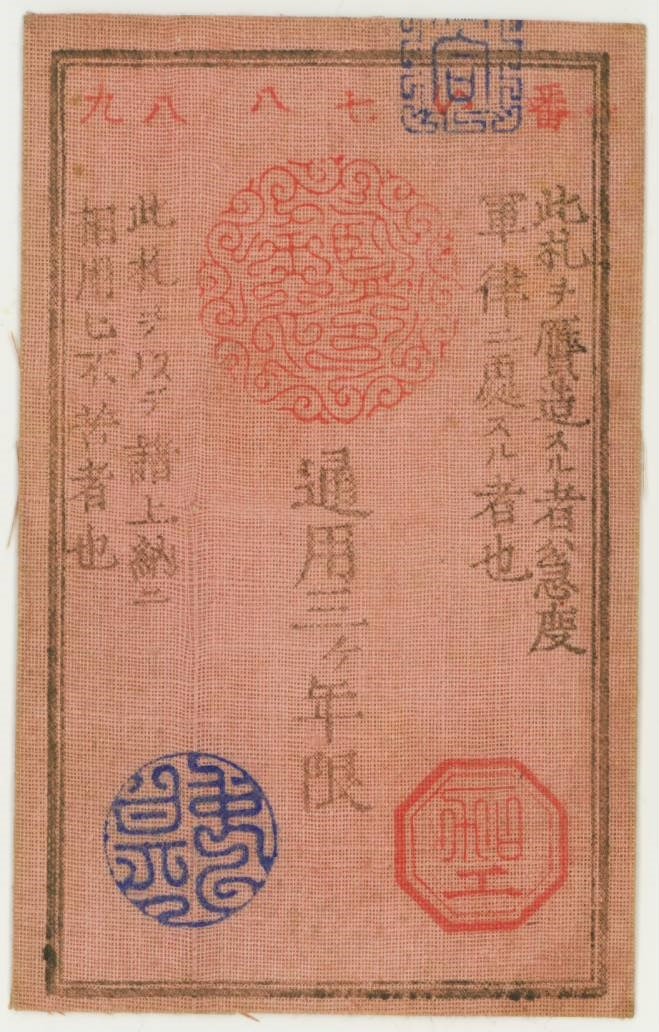 番 七八八九
此札ヲ贋造スル者ハ急度
軍律ニ処スル者也
通用三ヶ年限
此札ヲ以テ諸上納ニ
相用ヒ不苦者也